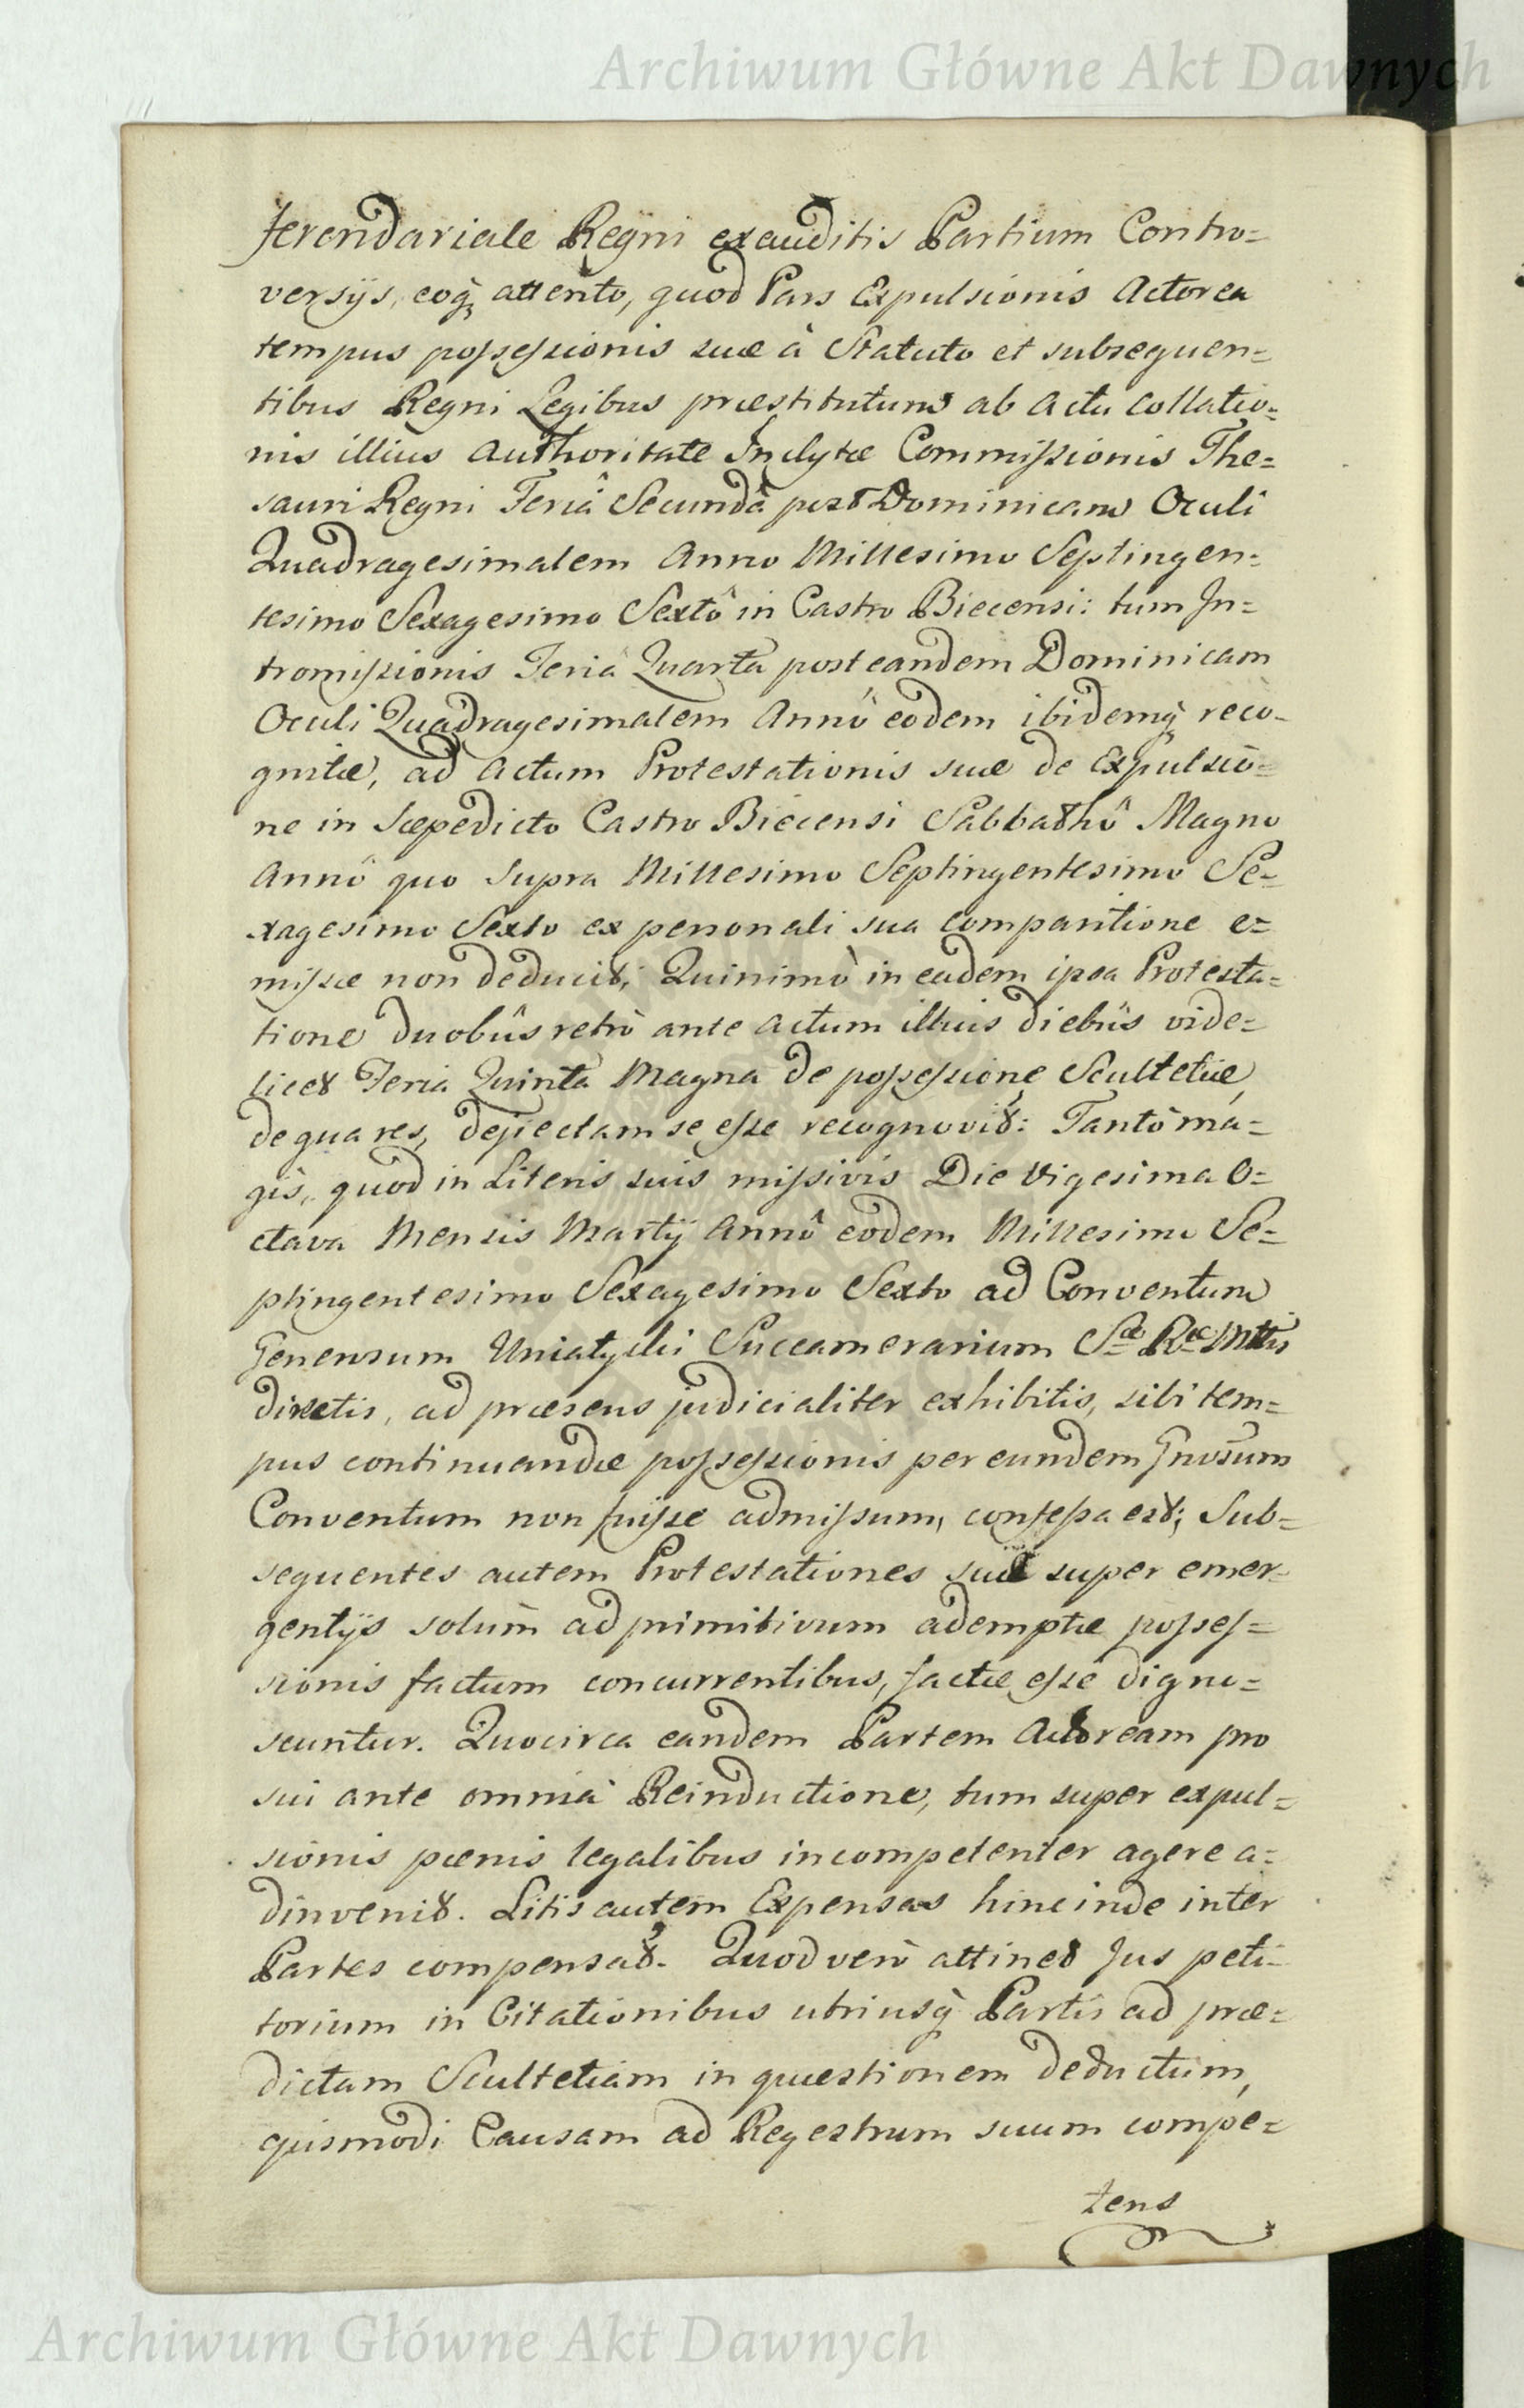 Archiwum Główne Akt Dawnych
ferendariale Regni exauditis Partium Contro=
versijs, eoq, attento, quod Pars Expulsionis Actorea
tempus possessionis suæ à Statuto et subsequen=
tibus Regni Legibus præstitutum ab Actu Collatio=
nis illius Authoritate Inclytæ Commissionis The=
sauri Regni Feriâ Secundâ post Dominicam Oculi
Quadragesimalem Anno Millesimo Septingen=
tesimo Sexagesimo Sextô in Castro Biecensi: tum In=
tromissionis Feriâ Quarta post eandem Dominicam
Oculi Quadragesimalem Annô eodem ibidemq reco=
gnitæ, ad Actum Protestationis suæ de Expulsio=
ne in Sæpedicto Castro Biecensi Sabbathô Magno
Annô quo supra Millesimo Septingentesimo Se=
xagesimo Sexto ex personali sua comparitione e=
missæ non deducit; Quinimò in eadem ipsa Protesta=
tione duobûs retrò ante Actum illius diebûs vide=
licet Feria Quinta Magna de possessione Scultetiæ,
de qua res, dejectam se esse recognovit: Tantò ma=
gis, quod in Literis suis missivis Die Vigesima O=
ctava Mensis Martij Annô eodem Millesimo Se=
ptingentesimo Sexagesimo Sexto ad Conventum
Generosum Uniatycki Succamerarium Sæ Ræ Mttis
directis, ad præsens judicialiter exhibitis, sibi tem=
pus continuandæ possessionis per eundem Gnosum
Conventum non fuisse admissum, confessa est; Sub=
sequentes autem Protestationes suæ super emer=
gentijs solùm ad primitivum ademptæ posses=
sionis factum concurrentibus, factæ esse digno=
scuntur. Quocirca eandem Partem Actoream pro
sui ante omnia Reinductione, tum super expul=
sionis pœnis legalibus incompetenter agere a=
dinvenit. Litis autem Expensas hinc inde inter
Partes compensat. Quod verò attinet Jus peti=
torium in Citationibus utriusq Partis ad præ=
dictam Scultetiam in quæstionem deductum,
ejusmodi Causam ad Regestrum suum compe=
tens
Archiwum Główne Akt Dawnych